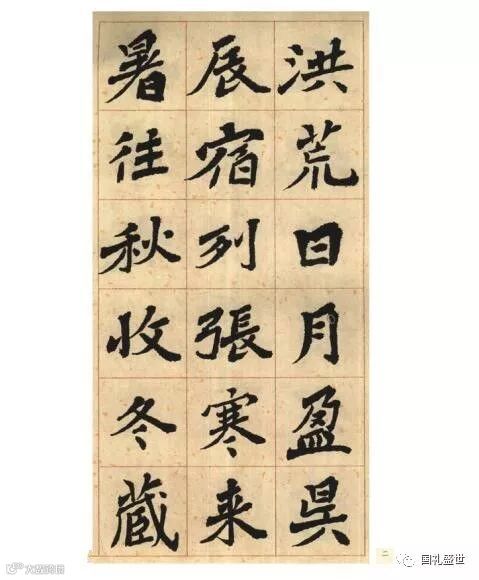 洪荒日月盈昃
辰宿列張寒来
暑往秋收冬藏
二
国礼盛世